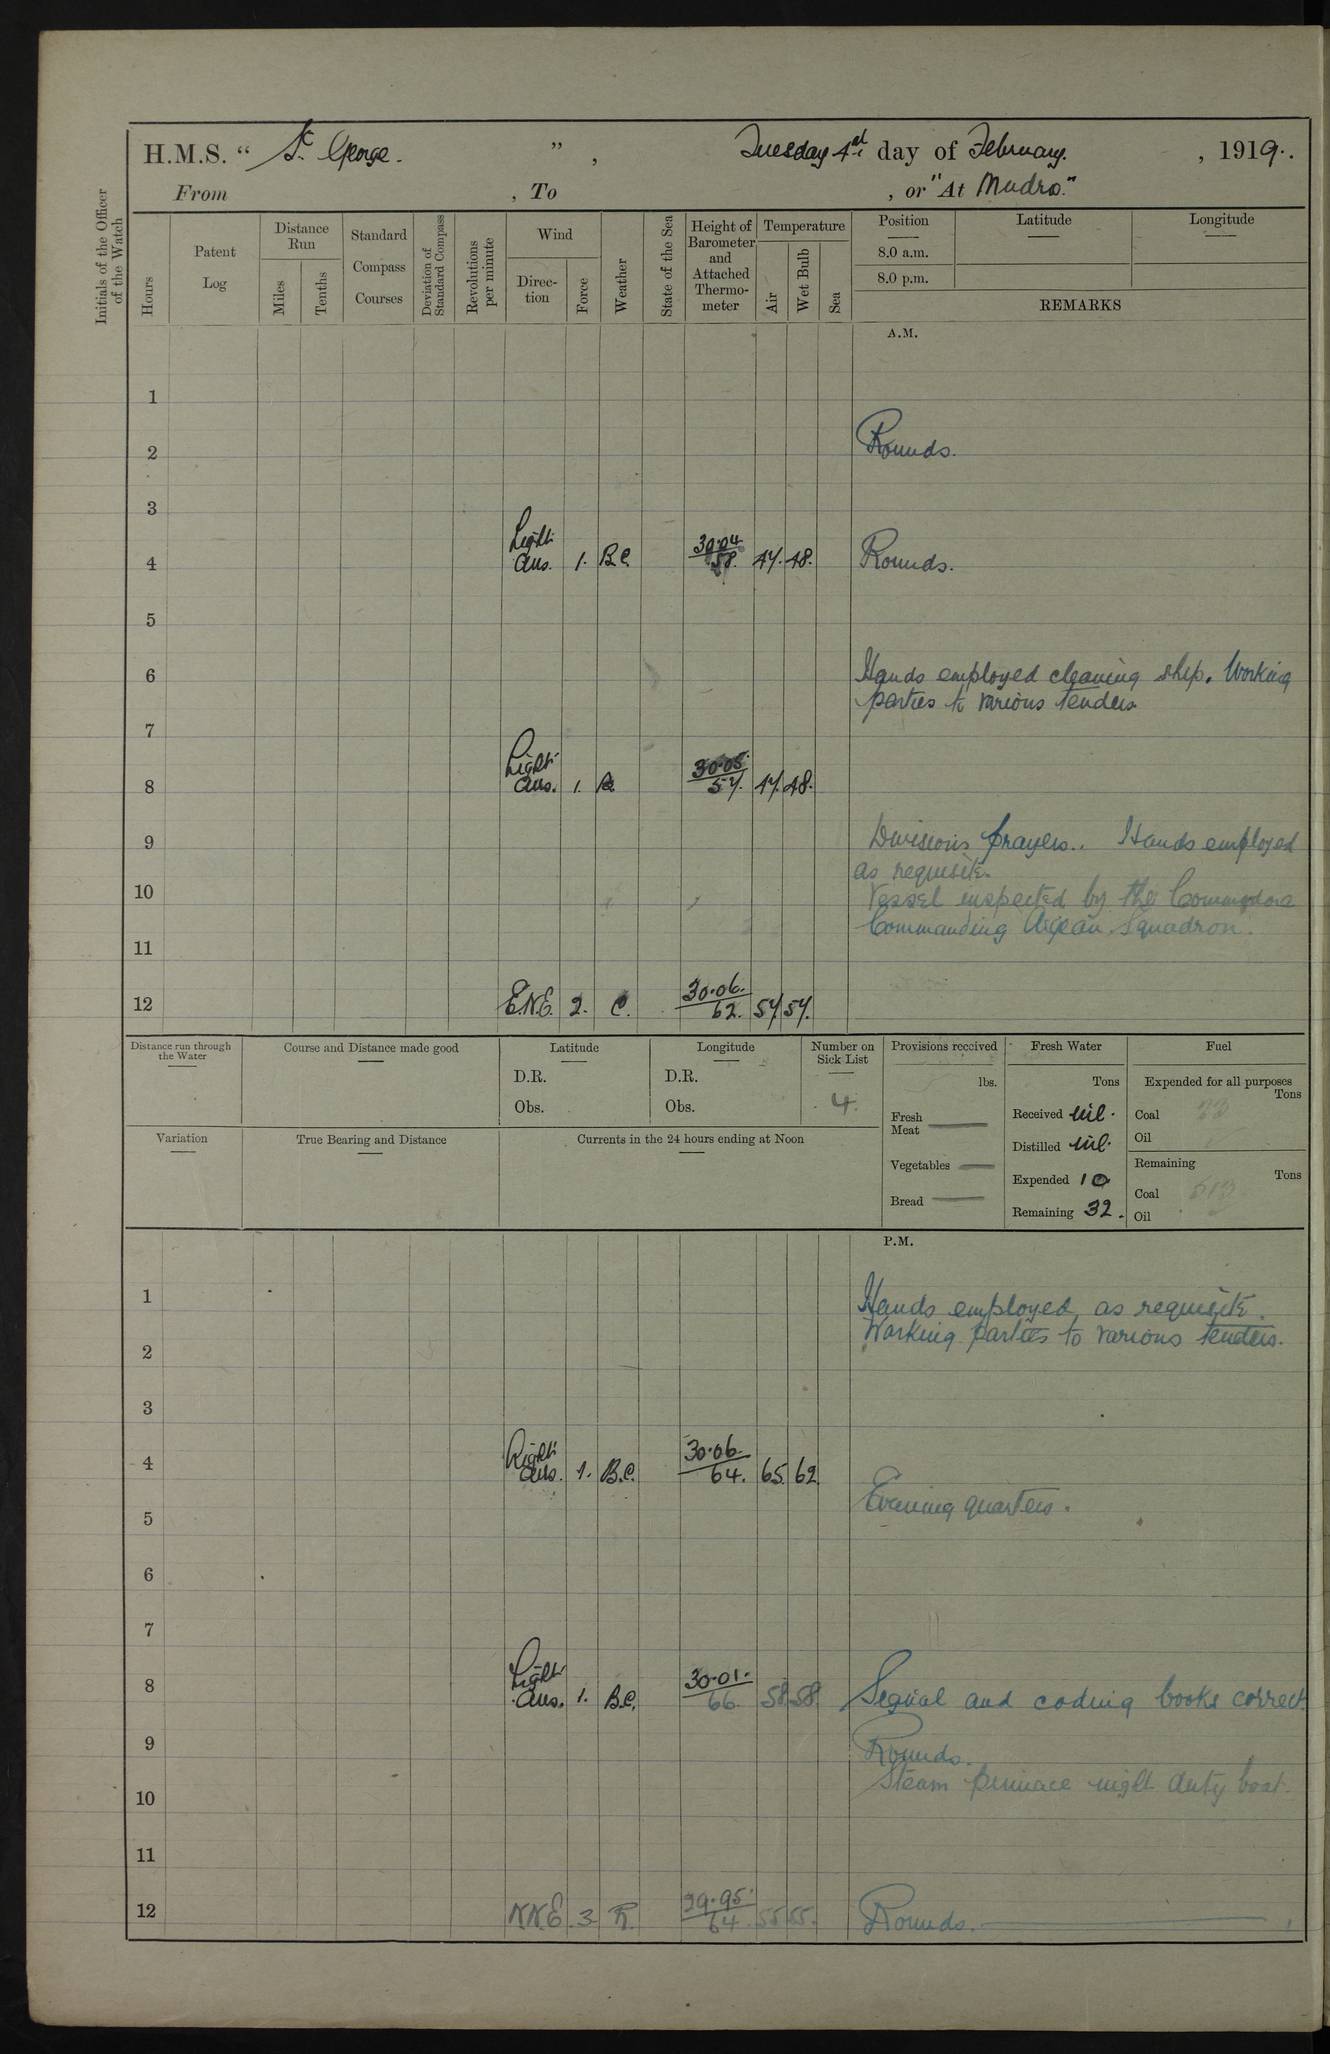 H.M.S. " St. George. ", Tuesday 4th day of February. , 1919.
From , To , or "At Mudros."
Initials of the Officer of the Watch
Hours
Patent Log
Distance Run
Miles
Tenths
Standard Compass Courses
Deviation of Standard Compass
Revolutions per minute
Wind
Direc-tion
Force
Weather
State of the Sea
Height of Barometer and Attached Thermo-meter
Temperature
Air
Wet Bulb
Sea
Position
8.0 a.m.
8.0 p.m.
Latitude
Longitude
REMARKS
A.M.
1
2 Rounds.
3
4 Light Airs. 1. B.C. 30.04 58. 47. 48. Rounds.
5
6 Hands employed cleaning ship. Working
parties to various tenders
7
8 Light Airs. 1. 30.05 57. 47. 48.
9 Divisions prayers.. Hands employed
as requisite.
10 Vessel inspected by the Commodore
Commanding Aegean Squadron.
11
12 E.N.E. 2. C. 30.06. 62. 57. 57.
Distance run through the Water
Course and Distance made good
Latitude
D.R.
Obs.
Longitude
D.R.
Obs.
Number on Sick List
4.
Provisions received
lbs.
Fresh Meat
Vegetables
Bread
Fresh Water
Tons
Received nil.
Distilled nil.
Expended 10
Remaining 32.
Fuel
Expended for all purposes
Tons
Coal
Oil
Remaining
Tons
Coal
Oil
Variation
True Bearing and Distance
Currents in the 24 hours ending at Noon
P.M.
1 Hands employed as requisite.
Working parties to various tenders.
2
3
4 Light Airs. 1. B.C. 30.06. 64. 65. 62.
Evening quarters.
5
6
7
8 Light Airs. 1. B.C. 30.01. 66. 58. 58. Signal and coding books correct
9 Rounds.
Steam pinnace night duty boat.
10
11
12 N.N.E. 3 R. 29.95. 64. 55. 55. Rounds.